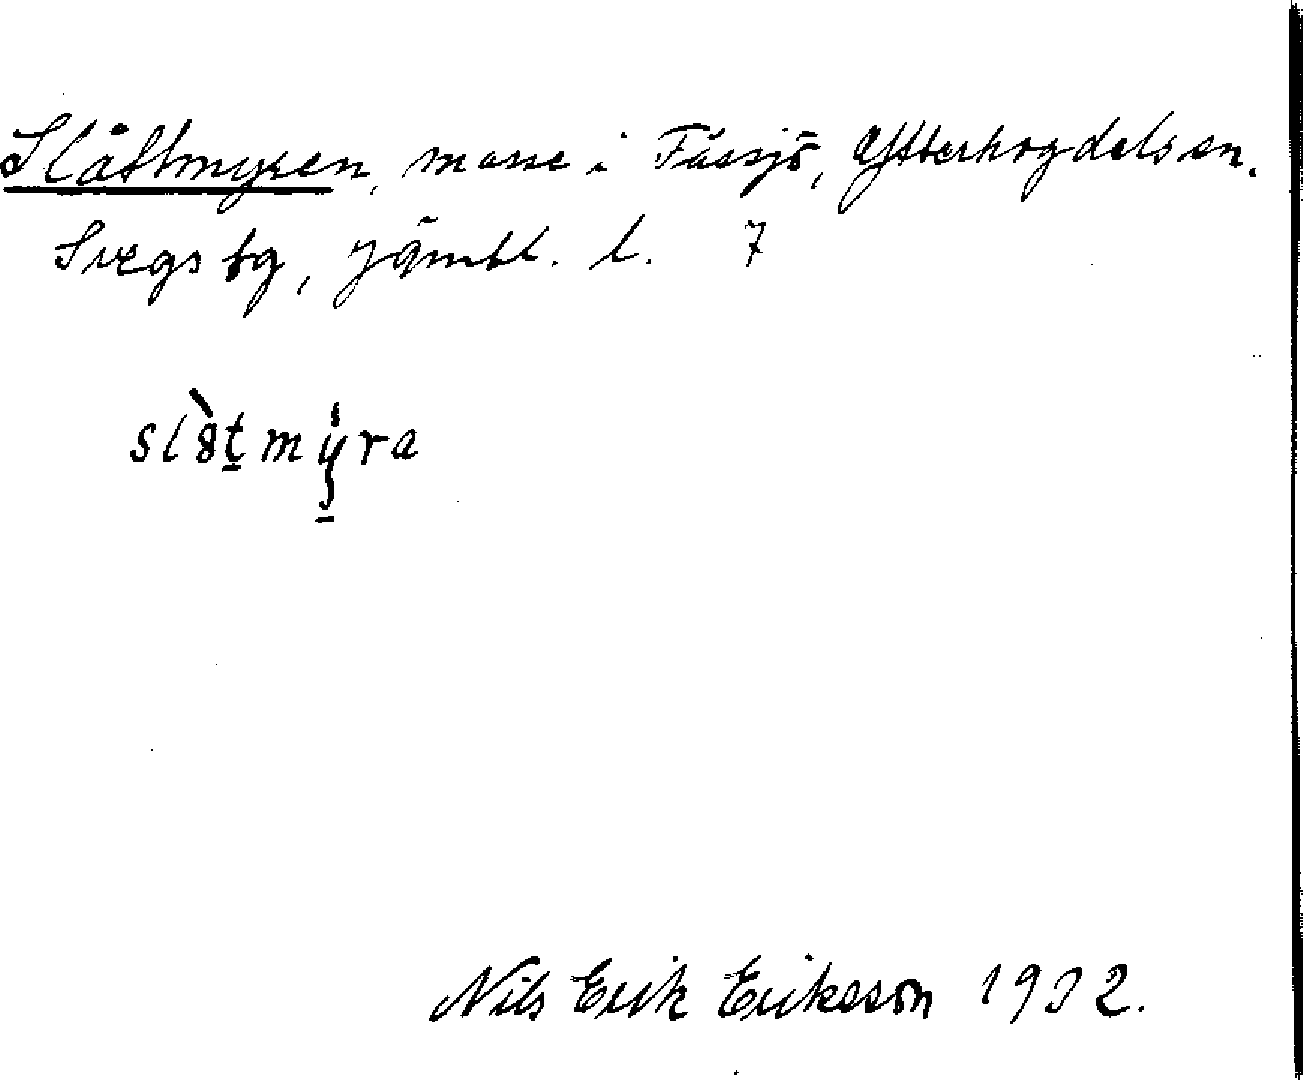 Slåttmyren, mosse i Fåssjö, Ytterhogdals sn.
Svegs tg, Jämtl. l. 7
slòt̲mÿ̲ra
Nils Erik Eriksson 1932.